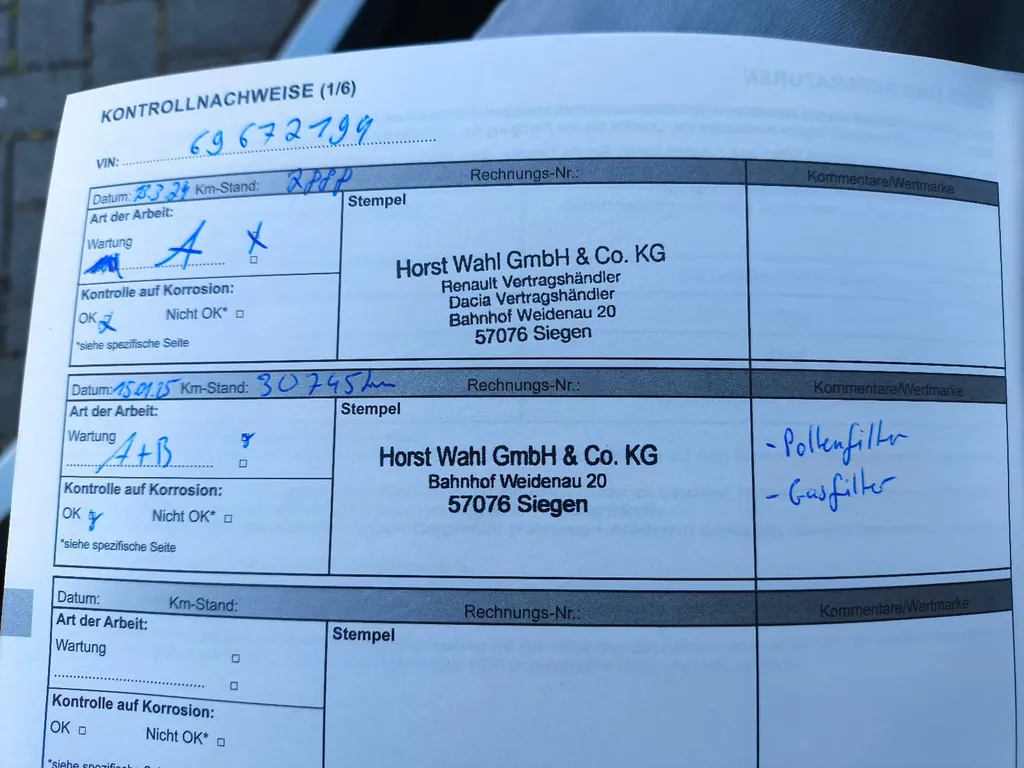 KONTROLLNACHWEISE (1/6)
VIN: 69672199
Datum: 13.3.24 Km-Stand: Rechnungs-Nr.: Kommentare/Wertmarke
Art der Arbeit:
Stempel
Wartung
A
Horst Wahl GmbH & Co. KG
Renault Vertragshändler
Dacia Vertragshändler
Bahnhof Weidenau 20
57076 Siegen
Kontrolle auf Korrosion:
OK Nicht OK*
*siehe spezifische Seite
Datum: 15.01.25 Km-Stand: 30745km Rechnungs-Nr.: Kommentare/Wertmarke
Art der Arbeit:
Stempel
Wartung
A+B
Horst Wahl GmbH & Co. KG
Bahnhof Weidenau 20
57076 Siegen
- Pollenfilter
- Gasfilter
Kontrolle auf Korrosion:
OK Nicht OK*
*siehe spezifische Seite
Datum: Km-Stand: Rechnungs-Nr.: Kommentare/Wertmarke
Art der Arbeit:
Stempel
Wartung
Kontrolle auf Korrosion:
OK Nicht OK*
*siehe spezifische Seite